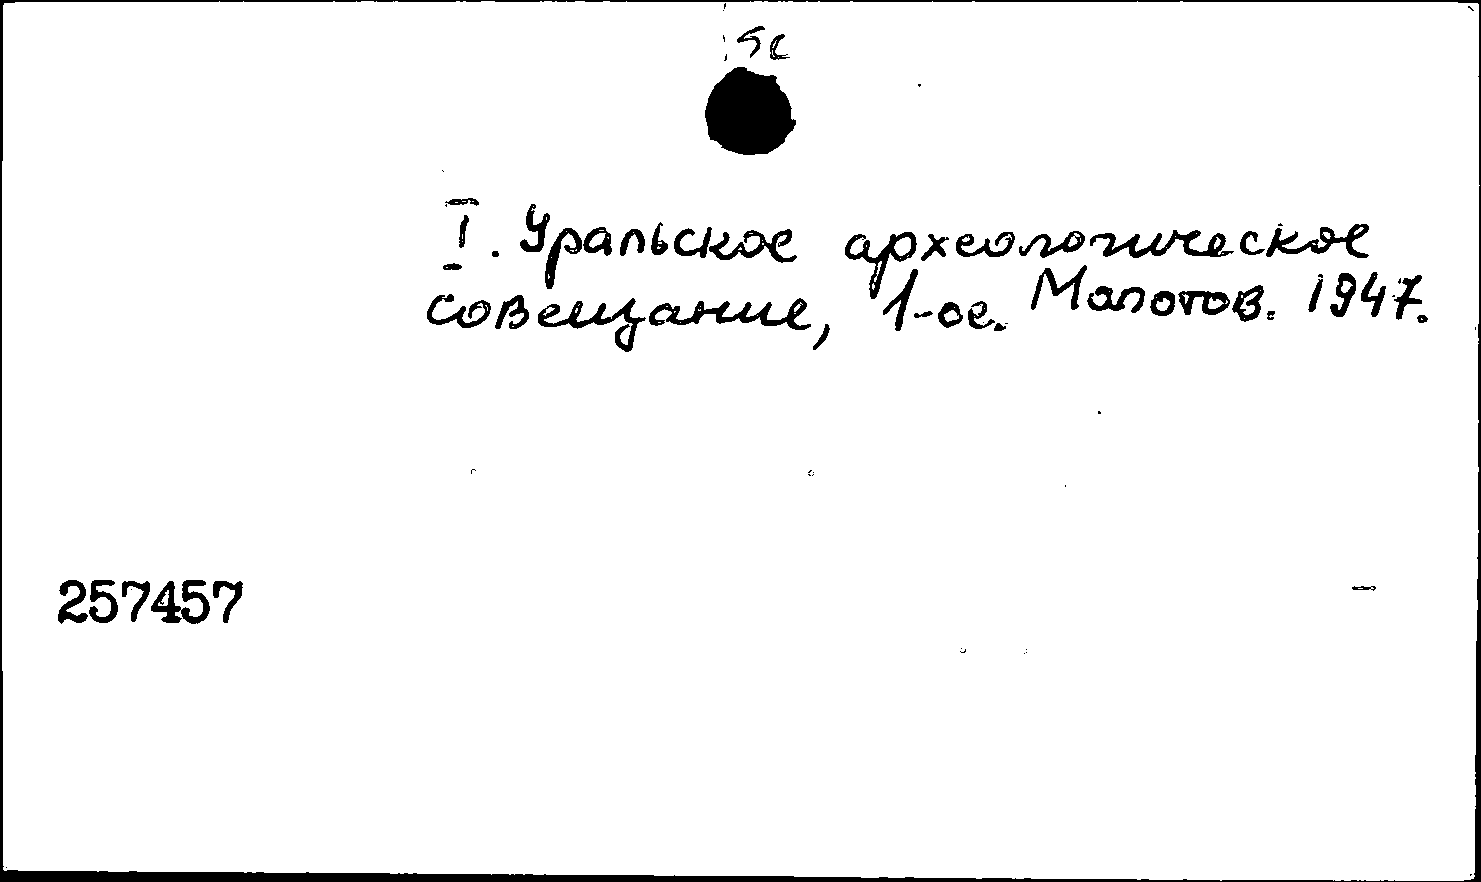 I. Уральское археологическое
совещание, 1-ое. Молотов. 1947.
257457